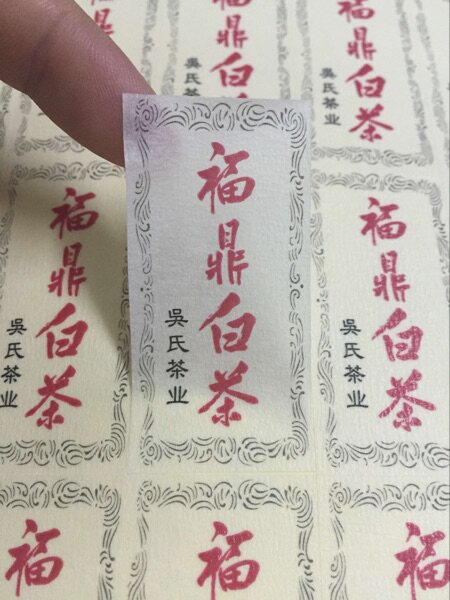 鼎白
吳氏茶
福鼎白茶
吳氏茶业
福鼎白茶
吳氏茶业
福鼎白茶
吳氏茶业
福鼎白茶
吳氏茶业
福
福
福